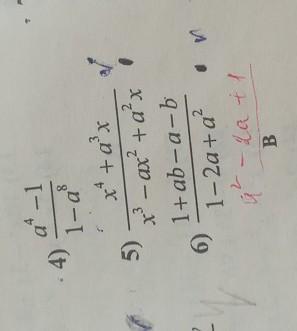 4) (a⁴ − 1)/(1 − a⁸)
5) (x⁴ + a³x)/(x³ − ax² + a²x)
6) (1 + ab − a − b)/(1 − 2a + a²)
a² − 2a + 1
В